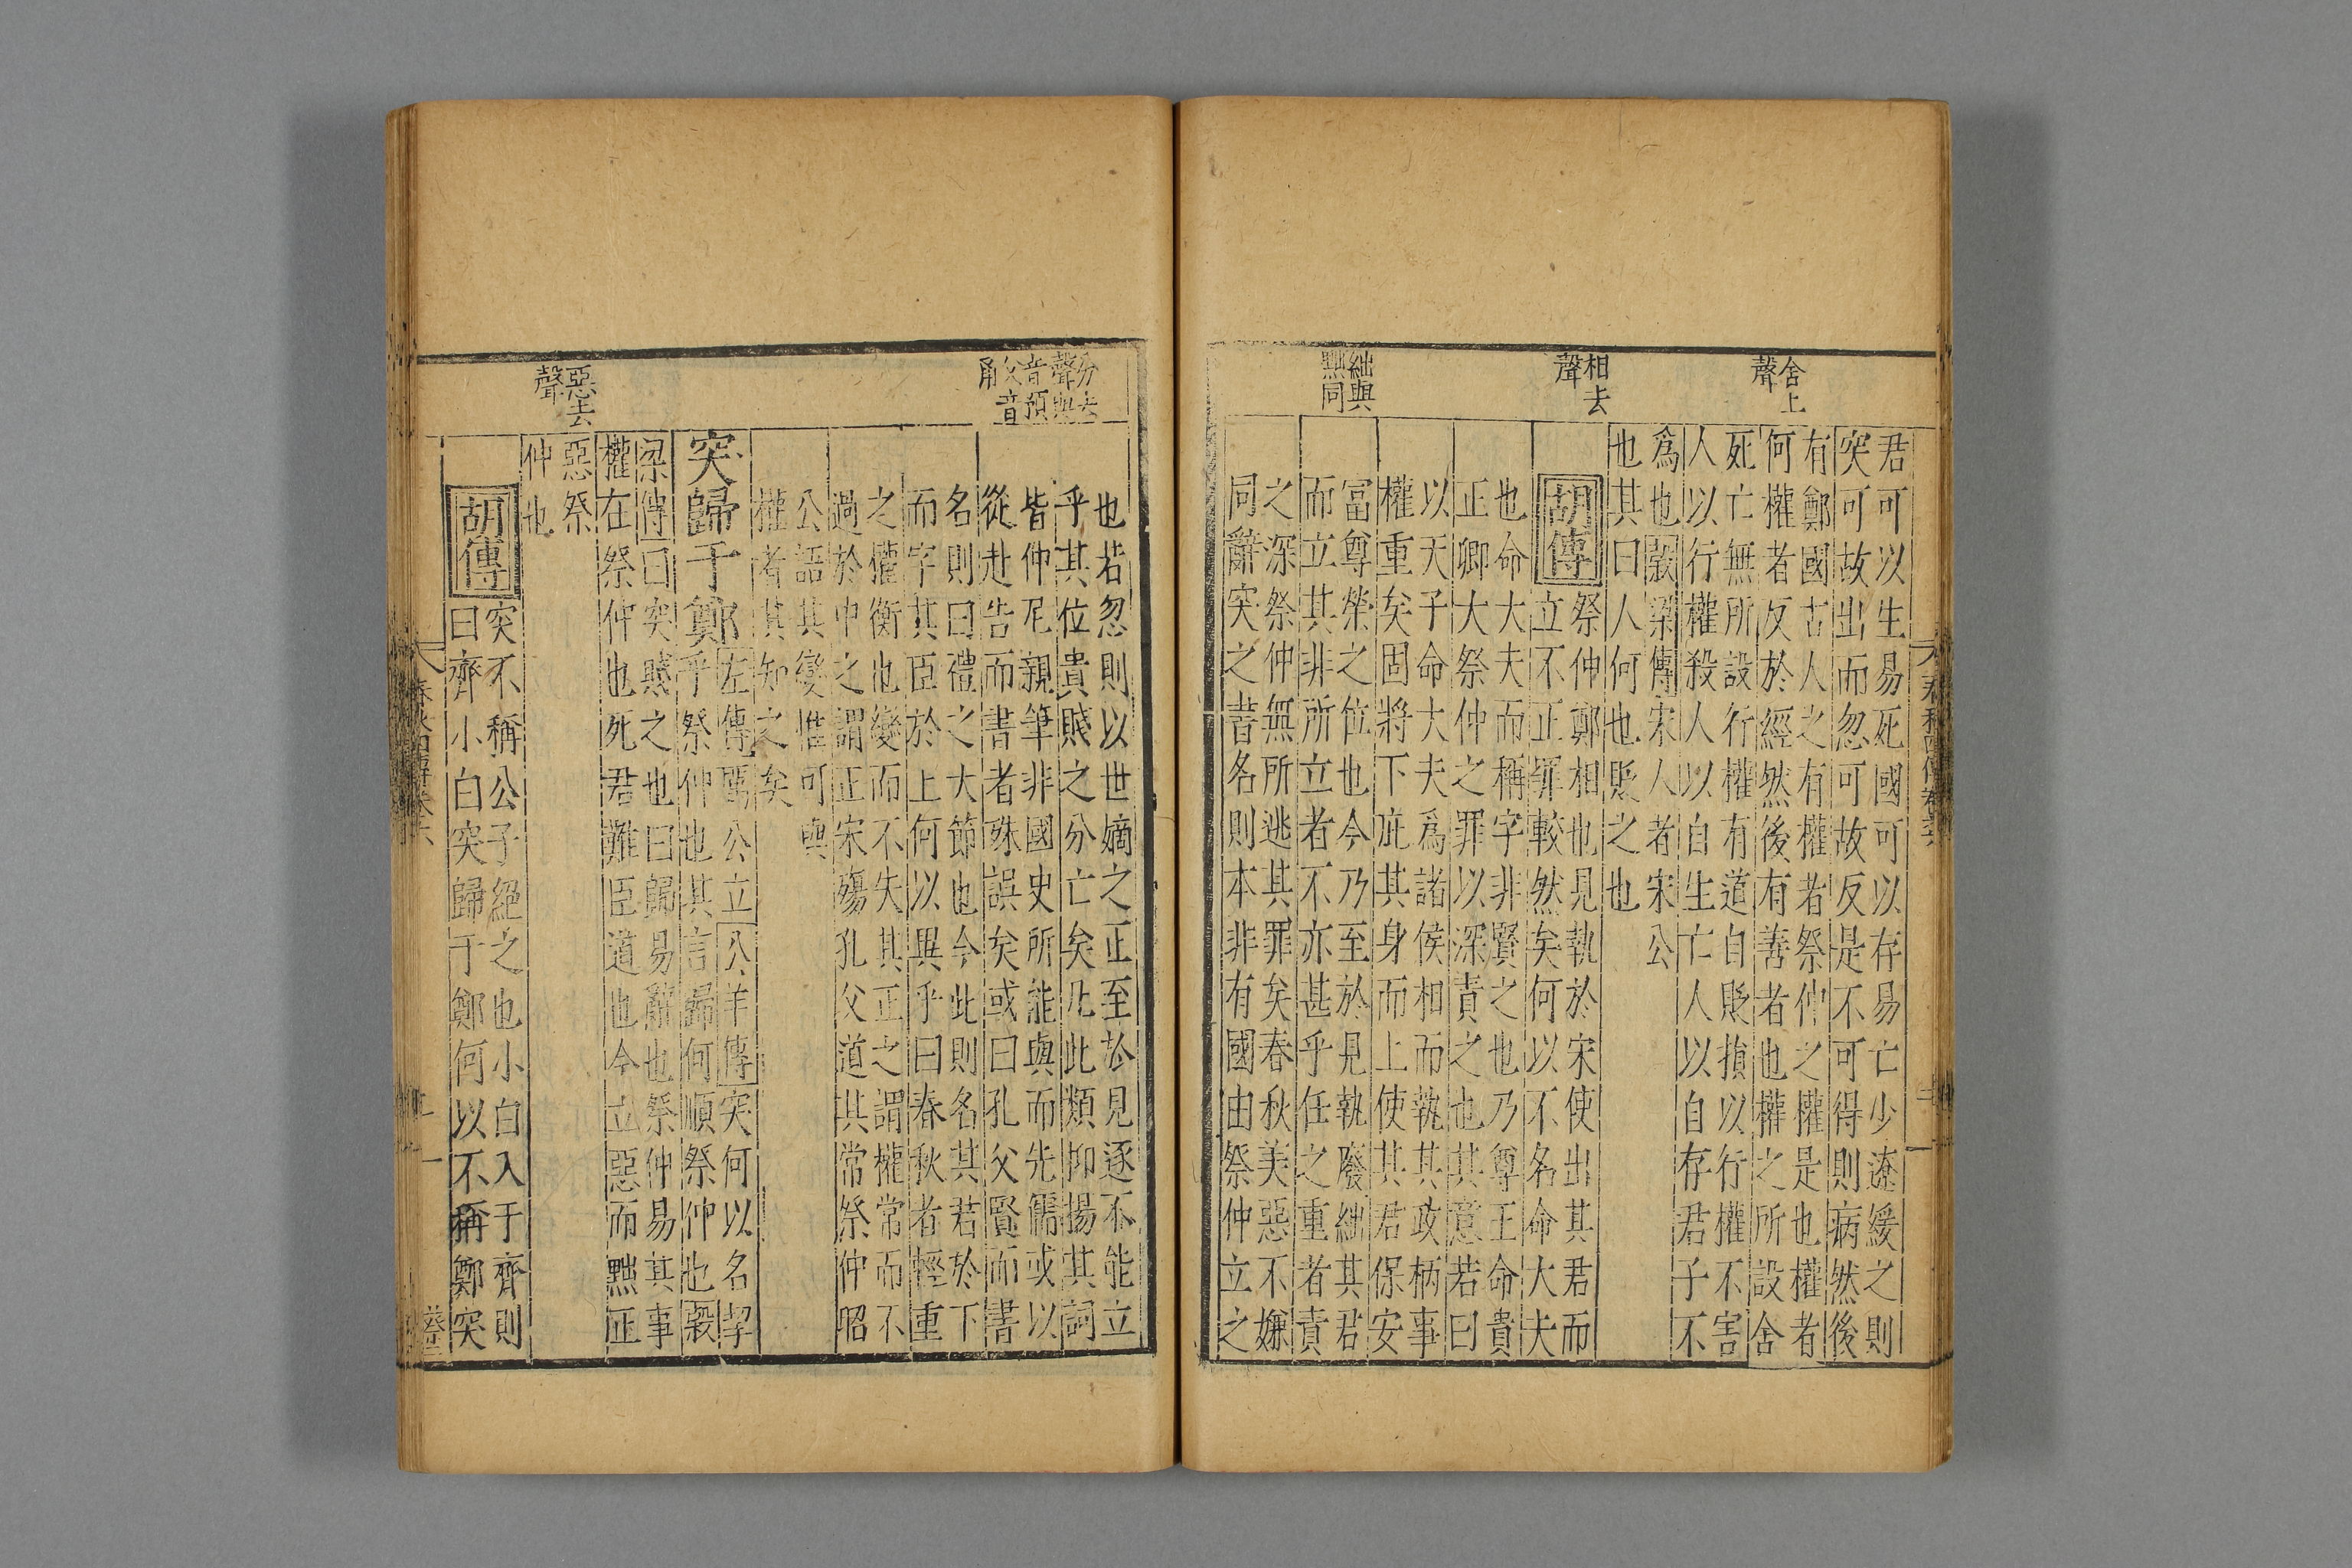 舍上
聲
相去
聲
絀與
黜同
君可以生易死國可以存易亡少遼緩之則
突可故出而忽可故反是不可得則病然後
有鄭國古人之有權者祭仲之權是也權者
何權者反於經然後有善者也權之所設舍
死亡無所設行權有道自貶損以行權不害
人以行權殺人以自生亡人以自存君子不
爲也穀梁傳宋人者宋公
也其曰人何也貶之也
胡傳
祭仲鄭相也見執於宋使出其君而
立不正罪較然矣何以不名命大夫
也命大夫而稱字非賢之也乃尊王命貴
正卿大祭仲之罪以深責之也其意若曰
以天子命大夫爲諸侯相而執其政柄事
權重矣固將下庇其身而上使其君保安
富尊榮之位也今乃至於見執廢絀其君
而立其非所立者不亦甚乎任之重者責
之深祭仲無所逃其罪矣春秋美惡不嫌
同辭突之書名則本非有國由祭仲立之
分去
聲與
音預
父音
甫
惡去
聲
也若忽則以世嫡之正至於見逐不能立
乎其位貴賤之分亡矣凡此類抑揚其詞
皆仲尼親筆非國史所能與而先儒或以
從赴告而書者殊誤矣或曰孔父賢而書
名則曰禮之大節也今此則名其君於下
而字其臣於上何以異乎曰春秋者輕重
之權衡也變而不失其正之謂權常而不
過於中之謂正宋殤孔父道其常祭仲昭
公語其變惟可與
權者其知之矣
突歸于鄭
左傳厲公立公羊傳突何以名挈
乎祭仲也其言歸何順祭仲也穀
梁傳曰突賤之也曰歸易辭也祭仲易其事
權在祭仲也死君難臣道也今立惡而黜正
惡祭
仲也
胡傳
突不稱公子絕之也小白入于齊則
曰齊小白突歸于鄭何以不稱鄭突